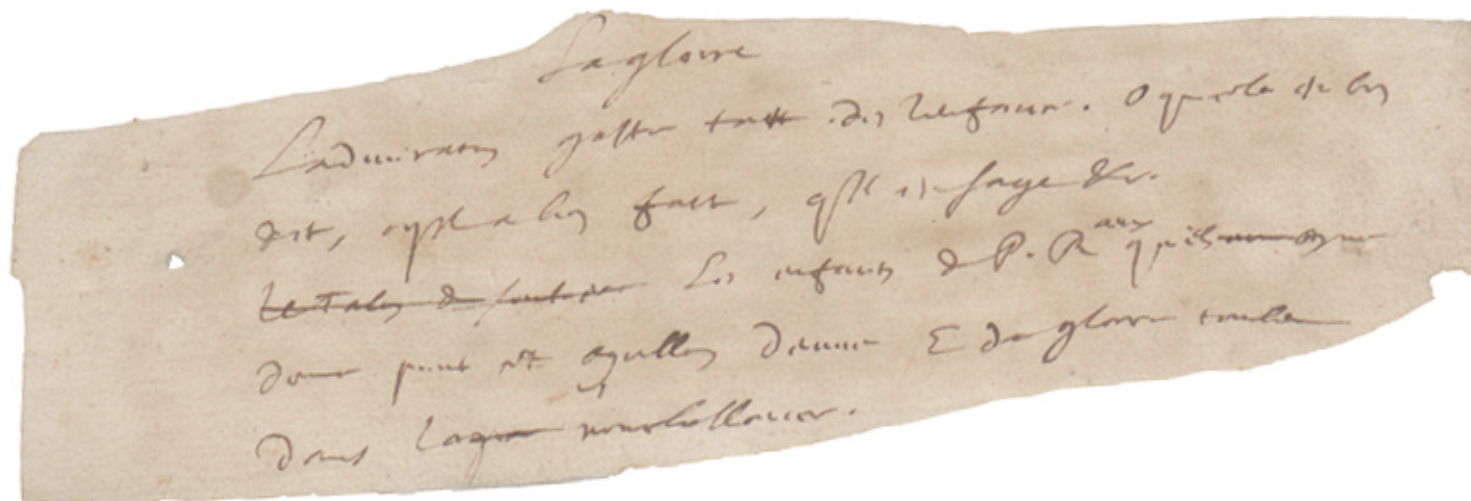 La gloire
L'admiration gaste tout des l'enfance. O que cela est bien
dit, o qu'il a bien fait, qu'il est sage &c.
Les enfants de P. R. auxquels on ne
donne point cet eguillon d'envie & de gloire tombent
dans la nonchallance.